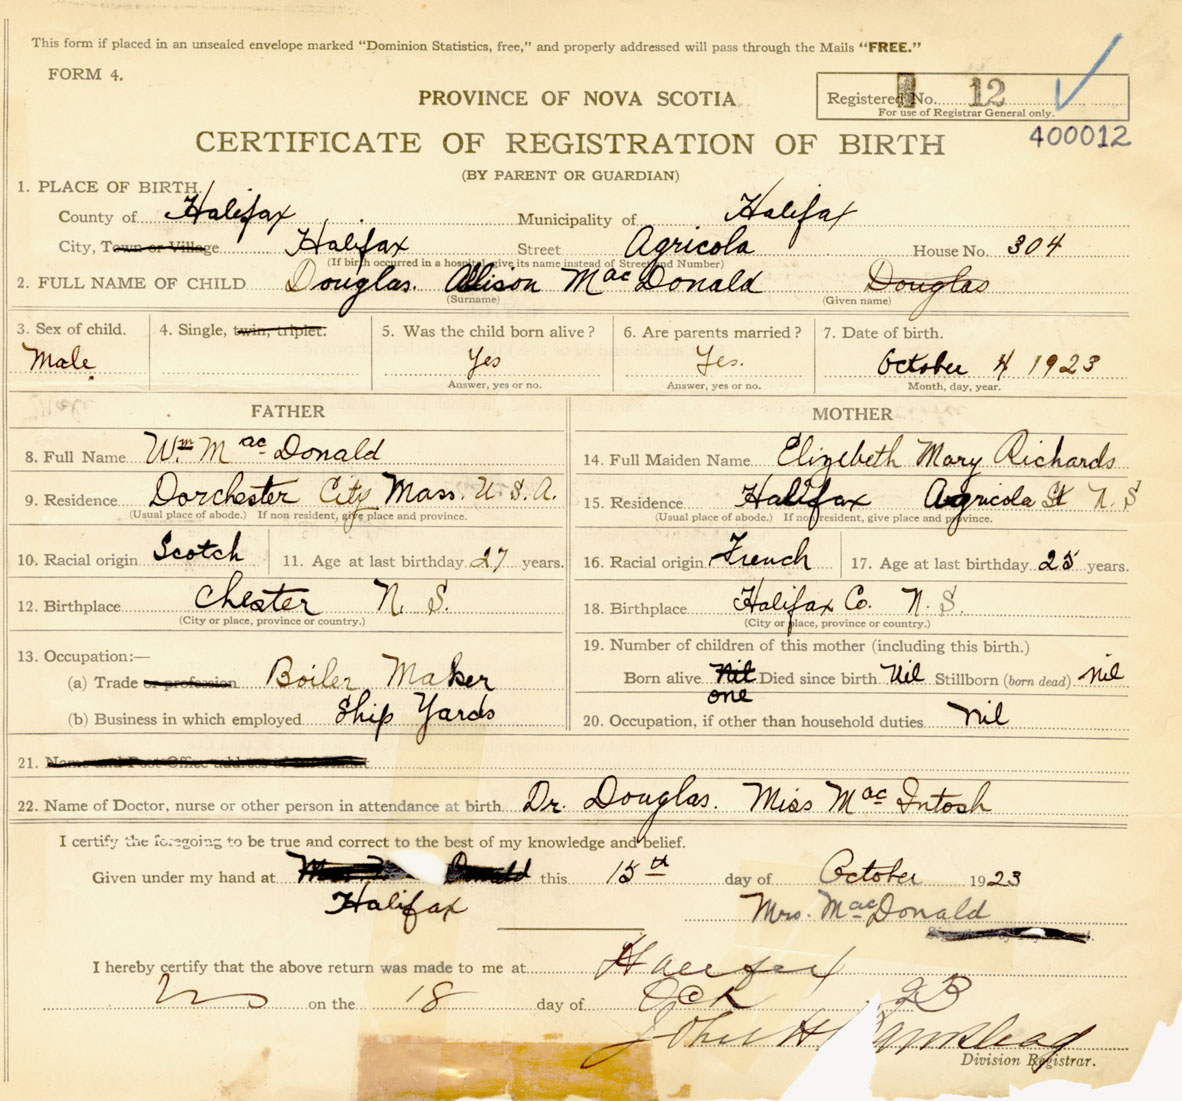 This form if placed in an unsealed envelope marked "Dominion Statistics, free," and properly addressed will pass through the Mails "FREE."
FORM 4.
Registered No. 12
For use of Registrar General only.
PROVINCE OF NOVA SCOTIA
400012
CERTIFICATE OF REGISTRATION OF BIRTH
(BY PARENT OR GUARDIAN)
1. PLACE OF BIRTH
County of Halifax Municipality of Halifax
City, Town or Village Halifax Street Agricola House No. 304
(If birth occurred in a hospital, give its name instead of Street and Number)
2. FULL NAME OF CHILD Douglas. Allison MacDonald Douglas
(Surname) (Given name)
3. Sex of child. 4. Single, twin, triplet. 5. Was the child born alive? 6. Are parents married? 7. Date of birth.
Male Yes Yes. October 4 1923
Answer, yes or no. Answer, yes or no. Month, day, year.
FATHER MOTHER
8. Full Name Wm MacDonald 14. Full Maiden Name Elizebeth Mary Richards
9. Residence Dorchester City Mass. U.S.A. 15. Residence Halifax Agricola St N.S
(Usual place of abode.) If non resident, give place and province. (Usual place of abode.) If non resident, give place and province.
10. Racial origin Scotch 11. Age at last birthday 27 years. 16. Racial origin French 17. Age at last birthday 25 years.
12. Birthplace Chester N.S. 18. Birthplace Halifax Co. N.S.
(City or place, province or country.) (City or place, province or country.)
13. Occupation:— 19. Number of children of this mother (including this birth.)
(a) Trade or profession Boiler Maker Born alive Nil one Died since birth Nil Stillborn (born dead) nil
(b) Business in which employed Ship Yards 20. Occupation, if other than household duties nil
21. Name and Post Office address of Informant
22. Name of Doctor, nurse or other person in attendance at birth Dr. Douglas. Miss MacIntosh
I certify the foregoing to be true and correct to the best of my knowledge and belief.
Given under my hand at this 15th day of October 1923
Halifax Mrs. MacDonald
I hereby certify that the above return was made to me at Halifax
NS on the 18 day of Oct 23
John H
Division Registrar.